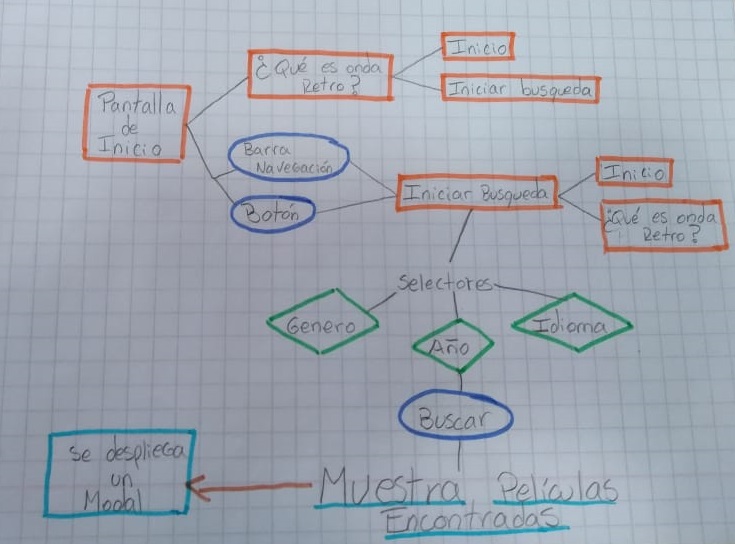 ¿Qué es onda
Retro?
Inicio
Iniciar busqueda
Pantalla
de
Inicio
Barra
Navegación
Botón
Iniciar Busqueda
Inicio
¿Qué es onda
Retro?
Selectores
Genero
Año
Idioma
Buscar
Se despliega
un
Modal
Muestra Películas
Encontradas